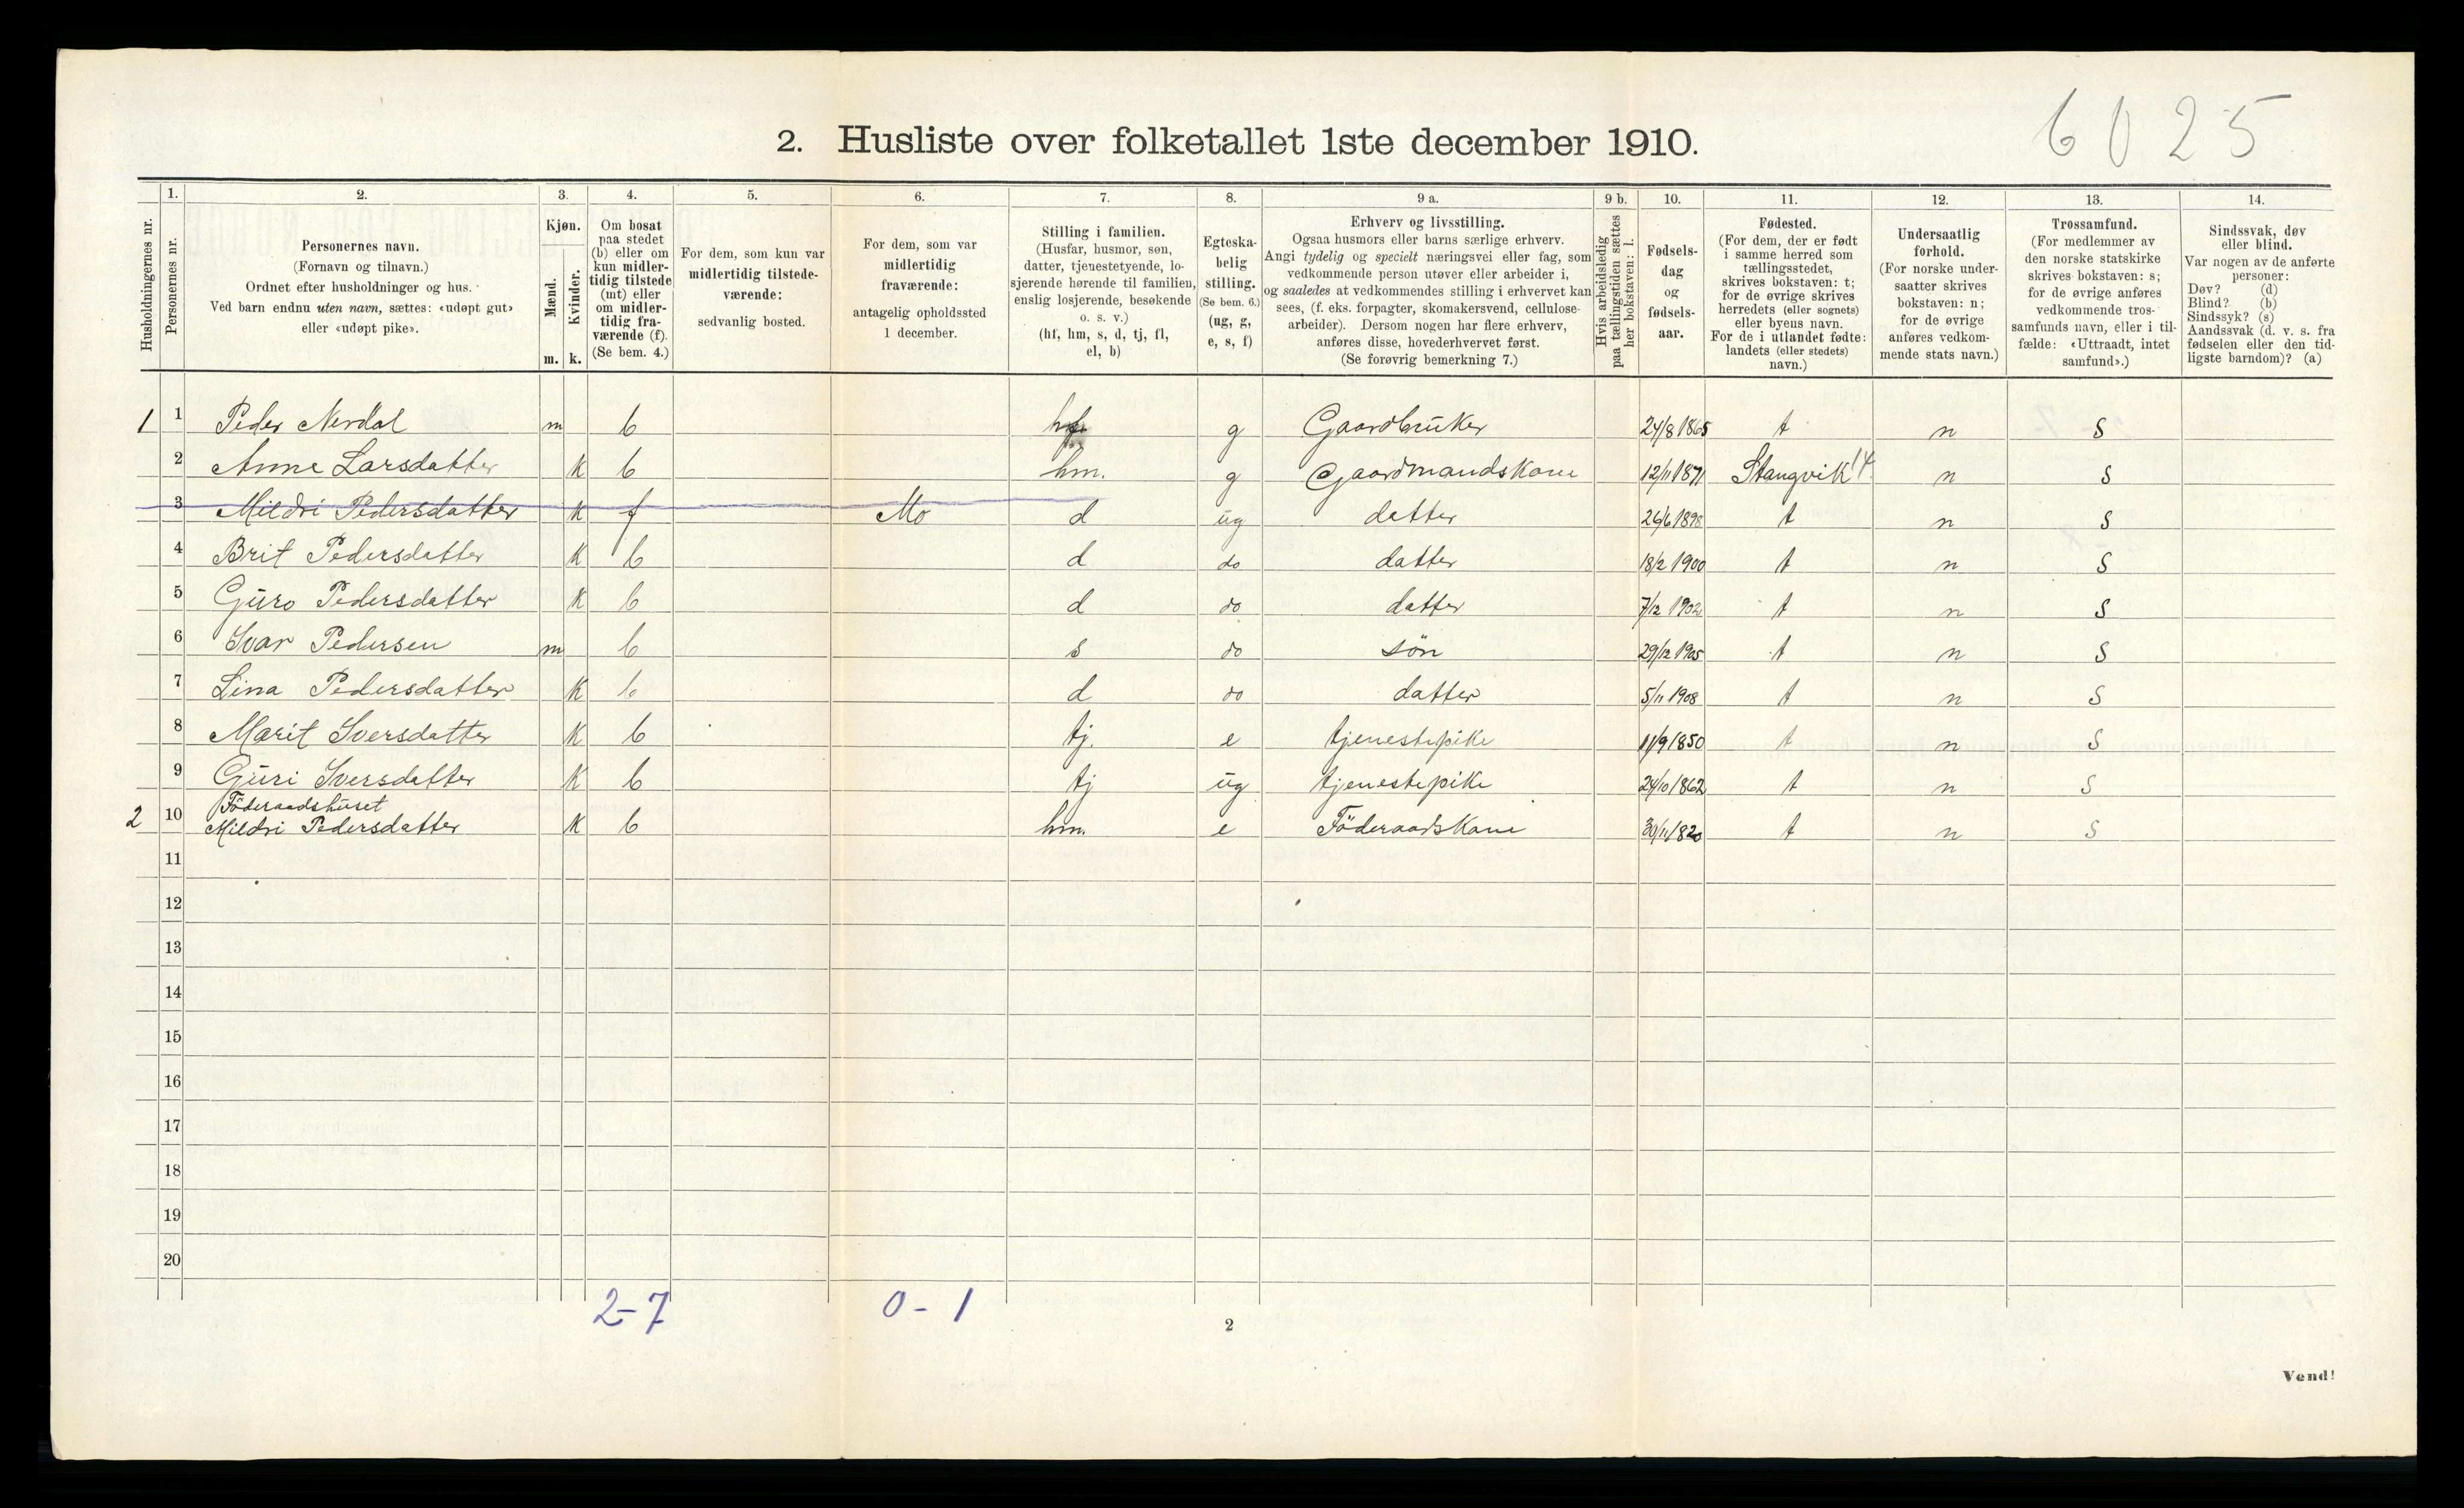 6025
2. Husliste over folketallet 1ste december 1910.
1. 2. 3. 4. 5. 6. 7. 8. 9 a. 9 b. 10. 11. 12. 13. 14.
Husholdningernes nr.
Personernes nr.
Personernes navn.
(Fornavn og tilnavn.)
Ordnet efter husholdninger og hus.
Ved barn endnu uten navn, sættes: «udøpt gut»
eller «udøpt pike».
Kjøn.
Mænd.
Kvinder.
m. k.
Om bosat
paa stedet
(b) eller om
kun midler-
tidig tilstede
(mt) eller
om midler-
tidig fra-
værende (f).
(Se bem. 4.)
For dem, som kun var
midlertidig tilstede-
værende:
sedvanlig bosted.
For dem, som var
midlertidig
fraværende:
antagelig opholdssted
1 december.
Stilling i familien.
(Husfar, husmor, søn,
datter, tjenestetyende, lo-
sjerende hørende til familien,
enslig losjerende, besøkende
o. s. v.)
(hf, hm, s, d, tj, fl,
el, b)
Egteska-
belig
stilling.
(Se bem. 6.)
(ug, g,
e, s, f)
Erhverv og livsstilling.
Ogsaa husmors eller barns særlige erhverv.
Angi tydelig og specielt næringsvei eller fag, som
vedkommende person utøver eller arbeider i,
og saaledes at vedkommendes stilling i erhvervet kan
sees, (f. eks. forpagter, skomakersvend, cellulose-
arbeider). Dersom nogen har flere erhverv,
anføres disse, hovederhvervet først.
(Se forøvrig bemerkning 7.)
Hvis arbeidsledig
paa tællingstiden sættes
her bokstaven: l.
Fødsels-
dag
og
fødsels-
aar.
Fødested.
(For dem, der er født
i samme herred som
tællingsstedet,
skrives bokstaven: t;
for de øvrige skrives
herredets (eller sognets)
eller byens navn.
For de i utlandet fødte:
landets (eller stedets)
navn.)
Undersaatlig
forhold.
(For norske under-
saatter skrives
bokstaven: n;
for de øvrige
anføres vedkom-
mende stats navn.)
Trossamfund.
(For medlemmer av
den norske statskirke
skrives bokstaven: s;
for de øvrige anføres
vedkommende tros-
samfunds navn, eller i til-
fælde: «Uttraadt, intet
samfund».)
Sindssvak, døv
eller blind.
Var nogen av de anførte
personer:
Døv? (d)
Blind? (b)
Sindssyk? (s)
Aandssvak (d. v. s. fra
fødselen eller den tid-
ligste barndom)? (a)
1 1 Peder Nerdal m b hf. g Gaardbruker 24/8 1865 t n s
2 Anne Larsdatter k b hm. g Gaardmandskone 12/11 1871 Stangvik 14 n s
3 Mildri Pedersdatter k f Mo d ug datter 26/6 1898 t n s
4 Brit Pedersdatter k b d do datter 18/2 1900 t n s
5 Guro Pedersdatter k b d do datter 7/12 1902 t n s
6 Ivar Pedersen m b s do søn 29/12 1905 t n s
7 Lina Pedersdatter k b d do datter 5/11 1908 t n s
8 Marit Iversdatter k b tj. e tjenestepike 11/9 1850 t n s
9 Guri Iversdatter k b tj ug tjenestepike 24/10 1862 t n s
Föderaadshuset
2 10 Mildri Pedersdatter k b hm. e Föderaadskone 30/11 1820 t n s
11
12
13
14
15
16
17
18
19
20
2-7 0-1
2
Vend!